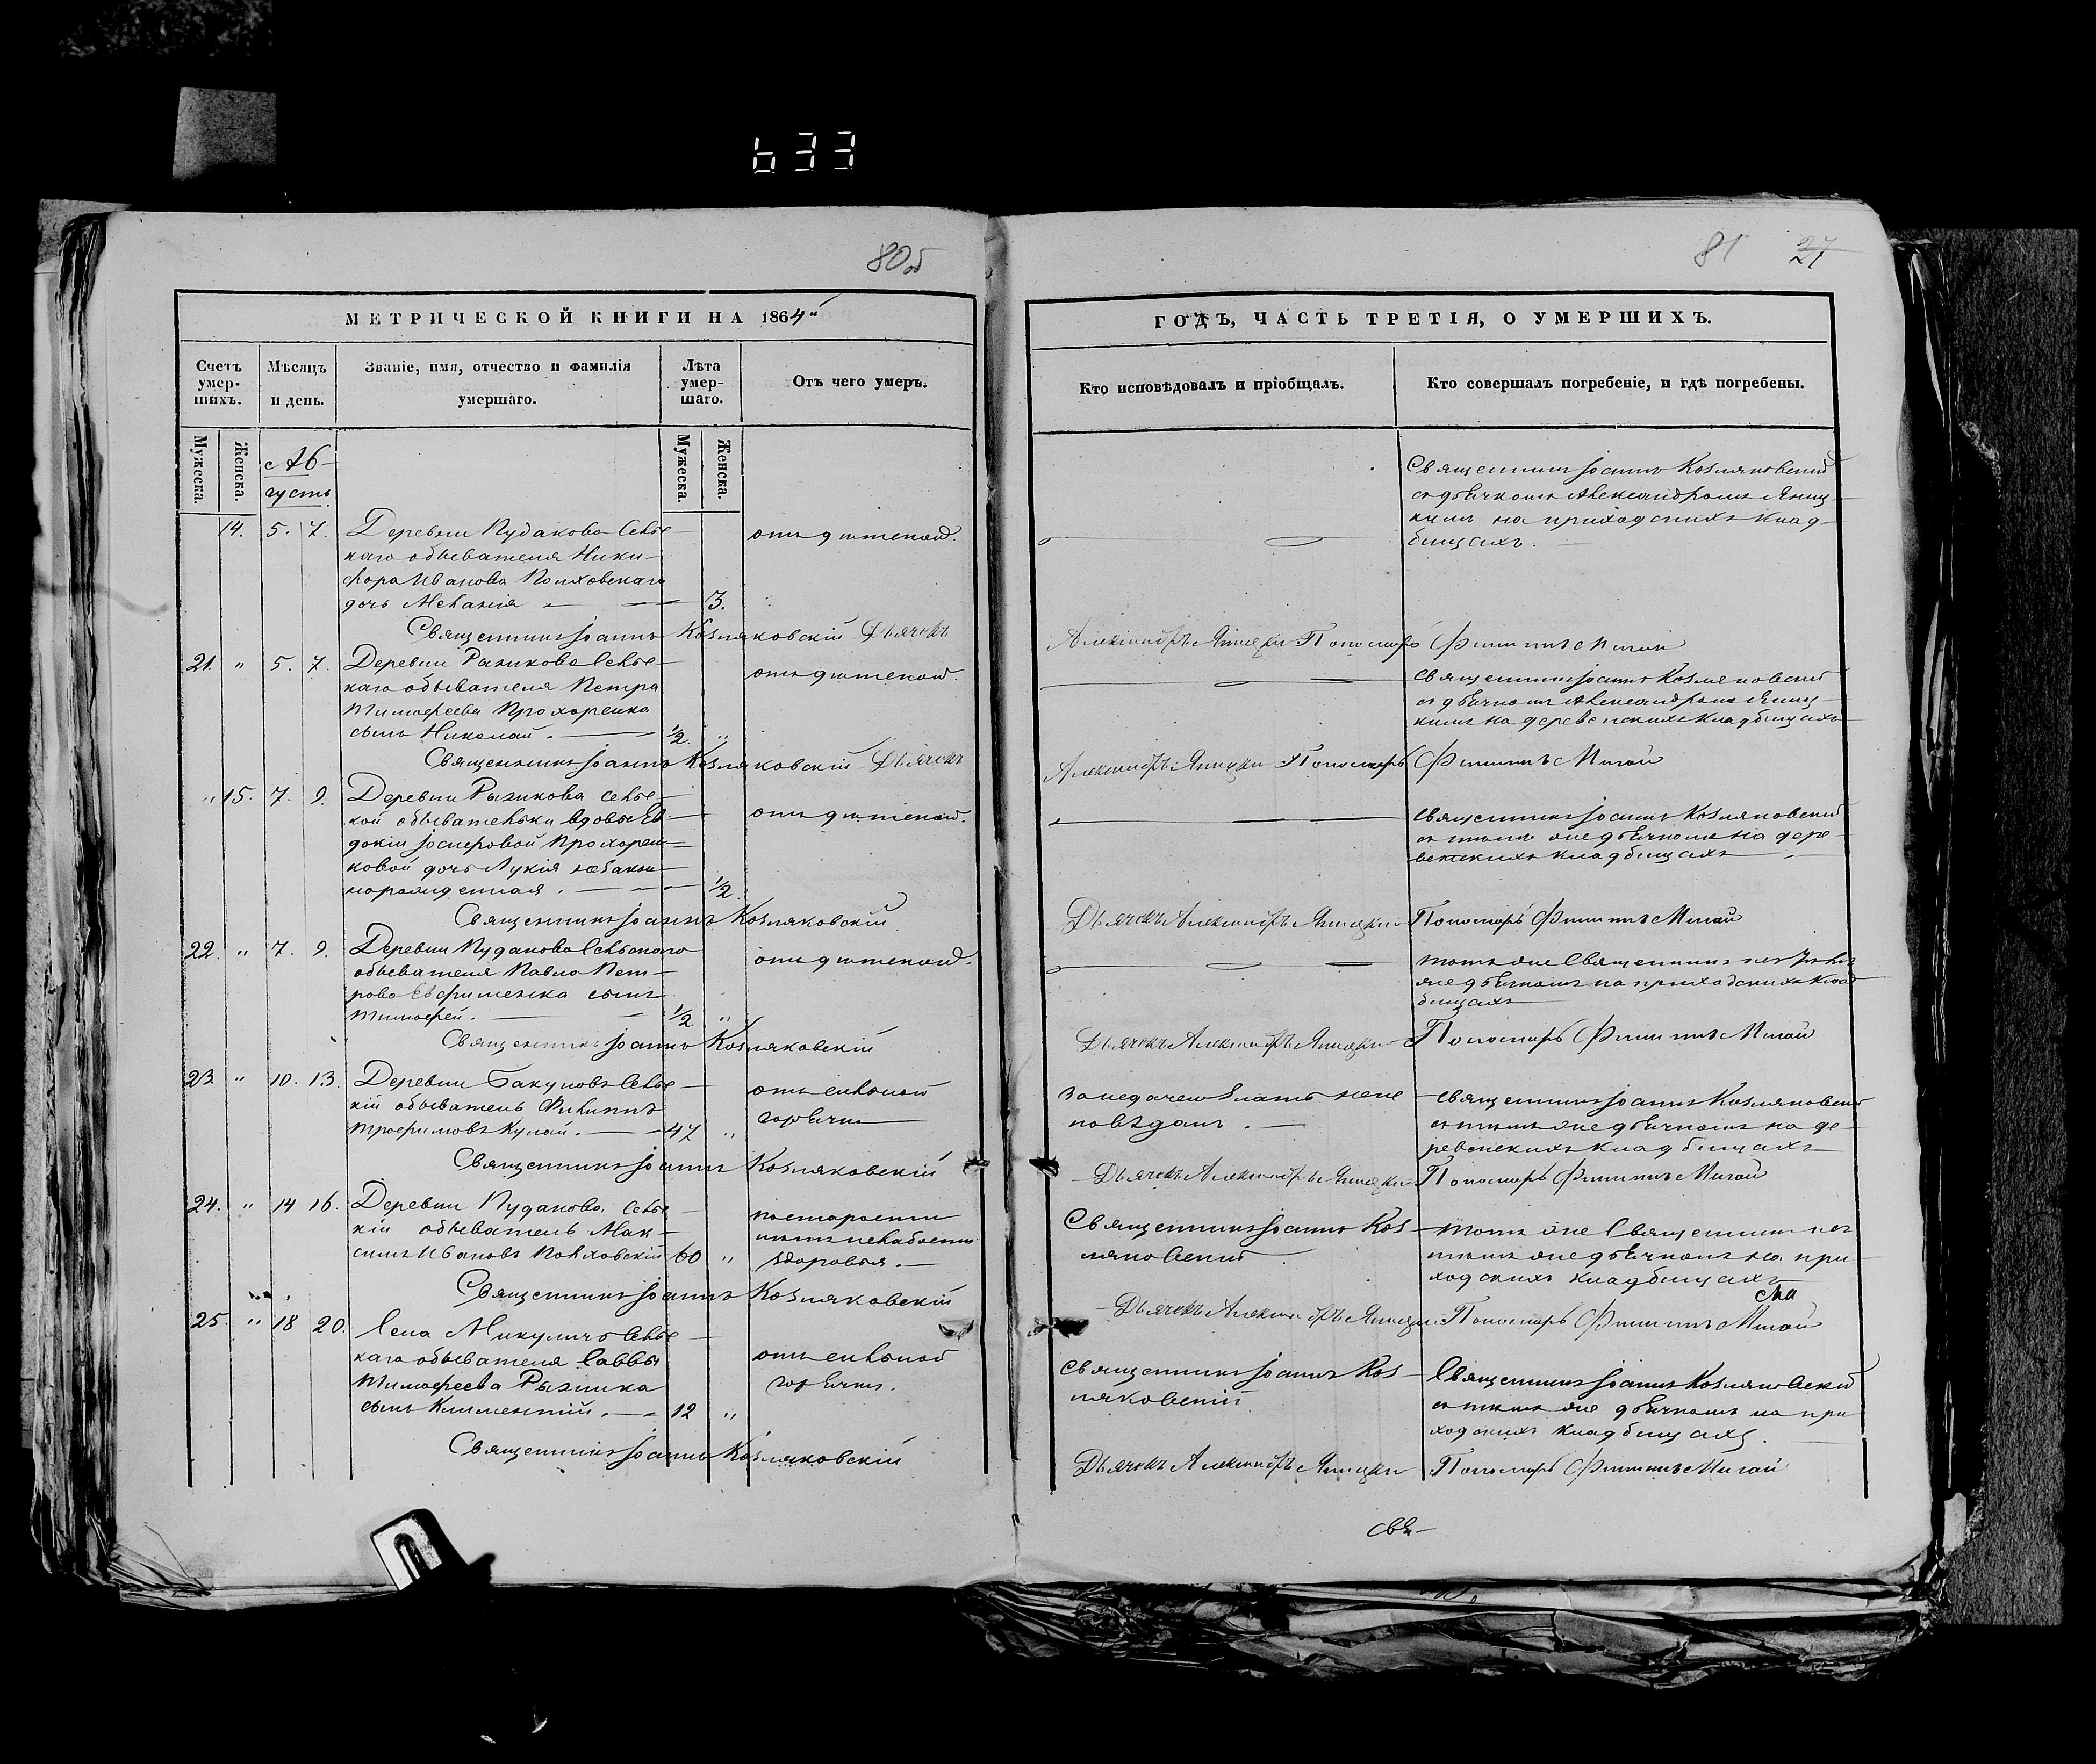 633
80об
81 27
МЕТРИЧЕСКОЙ КНИГИ НА 1864й
ГОДЪ, ЧАСТЬ ТРЕТІЯ, О УМЕРШИХЪ.
Счетъ умер-шихъ.
Мѣсяцъ и день.
Званіе, имя, отчество и фамилія умершаго.
Лѣта умер-шаго.
Отъ чего умеръ.
Кто исповѣдовалъ и пріобщалъ.
Кто совершалъ погребеніе, и гдѣ погребены.
Мужеска.
Женска.
Ав-
густъ
Мужеска.
Женска.
14. 5. 7. Деревни Пудакова Селье-
каго обывателя Ники-
фора Иванова Полховскаго
дочь Меланія 3.
Священникъ Іоаннъ Козляковскій Дьячекъ
Александръ Яницкій Пономарь Филиппъ Мигай
Священникъ Іоаннъ Козляковскій
съ дьячкомъ Александромъ Яниц-
кимъ на приходскихъ клад-
бищахъ.
21. " 5. 7. Деревни Рыжикова Селье-
каго обывателя Петра
Тимофеева Прохоренка
сынъ Николай. 1/2. "
Священникъ Іоаннъ Козляковскій Дьячекъ
Александръ Яницкій Пономарь Филиппъ Мигай
священникъ Іоаннъ Козляковскій
съ дьячкомъ Александромъ Яниц-
кимъ на деревенскихъ кладбищахъ
" 15. 7. 9. Деревни Рыжикова селье-
кой обывательки вдовы Ев-
докіи Іосифовой Прохорен-
ковой дочь Лукія незакон-
норожденная. 1/2
Священникъ Іоаннъ Козляковскій
Дьячекъ Александръ Яницкій Пономарь Филиппъ Мигай
священникъ Іоаннъ Козляковскій
съ тымъ же дьячкомъ на дере-
венскихъ кладбищахъ
22. " 7. 9. Деревни Пудакова Сельскаго
обывателя Павла Пет-
рова Евфименка сынъ
Тимофей. 1/2 "
Священникъ Іоаннъ Козляковскій
Дьячекъ Александръ Яницкій Пономарь Филиппъ Мигай
тотъ же Священникъ
же дьячкомъ на приходскихъ клад-
бищахъ
23 " 10. 13. Деревни Бакуновъ Селье-
кій обыватель Филиппъ
Трофимовъ Кулай. 47 "
отъ сильной
горячки
Священникъ Іоаннъ Козляковскій
Дьячекъ Александръ Яницкій Пономарь Филиппъ Мигай
священникъ Іоаннъ Козляковскій
съ тымъ же дьячкомъ на де-
ревенскихъ кладбищахъ
24. " 14 16. Деревни Пудакова Селье-
кій обыватель Мак-
симъ Ивановъ Полховскій 60 "
здоровья.
Священникъ Іоаннъ Козляковскій
Дьячекъ Александръ Яницкій Пономарь Филиппъ Мигай
Священникъ Іоаннъ Коз-
ляковскій
тотъ же Священникъ съ
тымъ же дьячкомъ на при-
ходскихъ кладбищахъ
25. " 18 20. Села Микуличъ Селье-
каго обывателя Саввы
Тимофеева Рыжика
сынъ Климентій. 12 "
отъ сильной
горячки.
Священникъ Іоаннъ Козляковскій
Дьячекъ Александръ Яницкій Пономарь Филиппъ Мигай
священникъ Іоаннъ Коз-
ляковскій
Священникъ Іоаннъ Козляковскій
съ тымъ же дьячкомъ на при-
ходскихъ кладбищахъ.